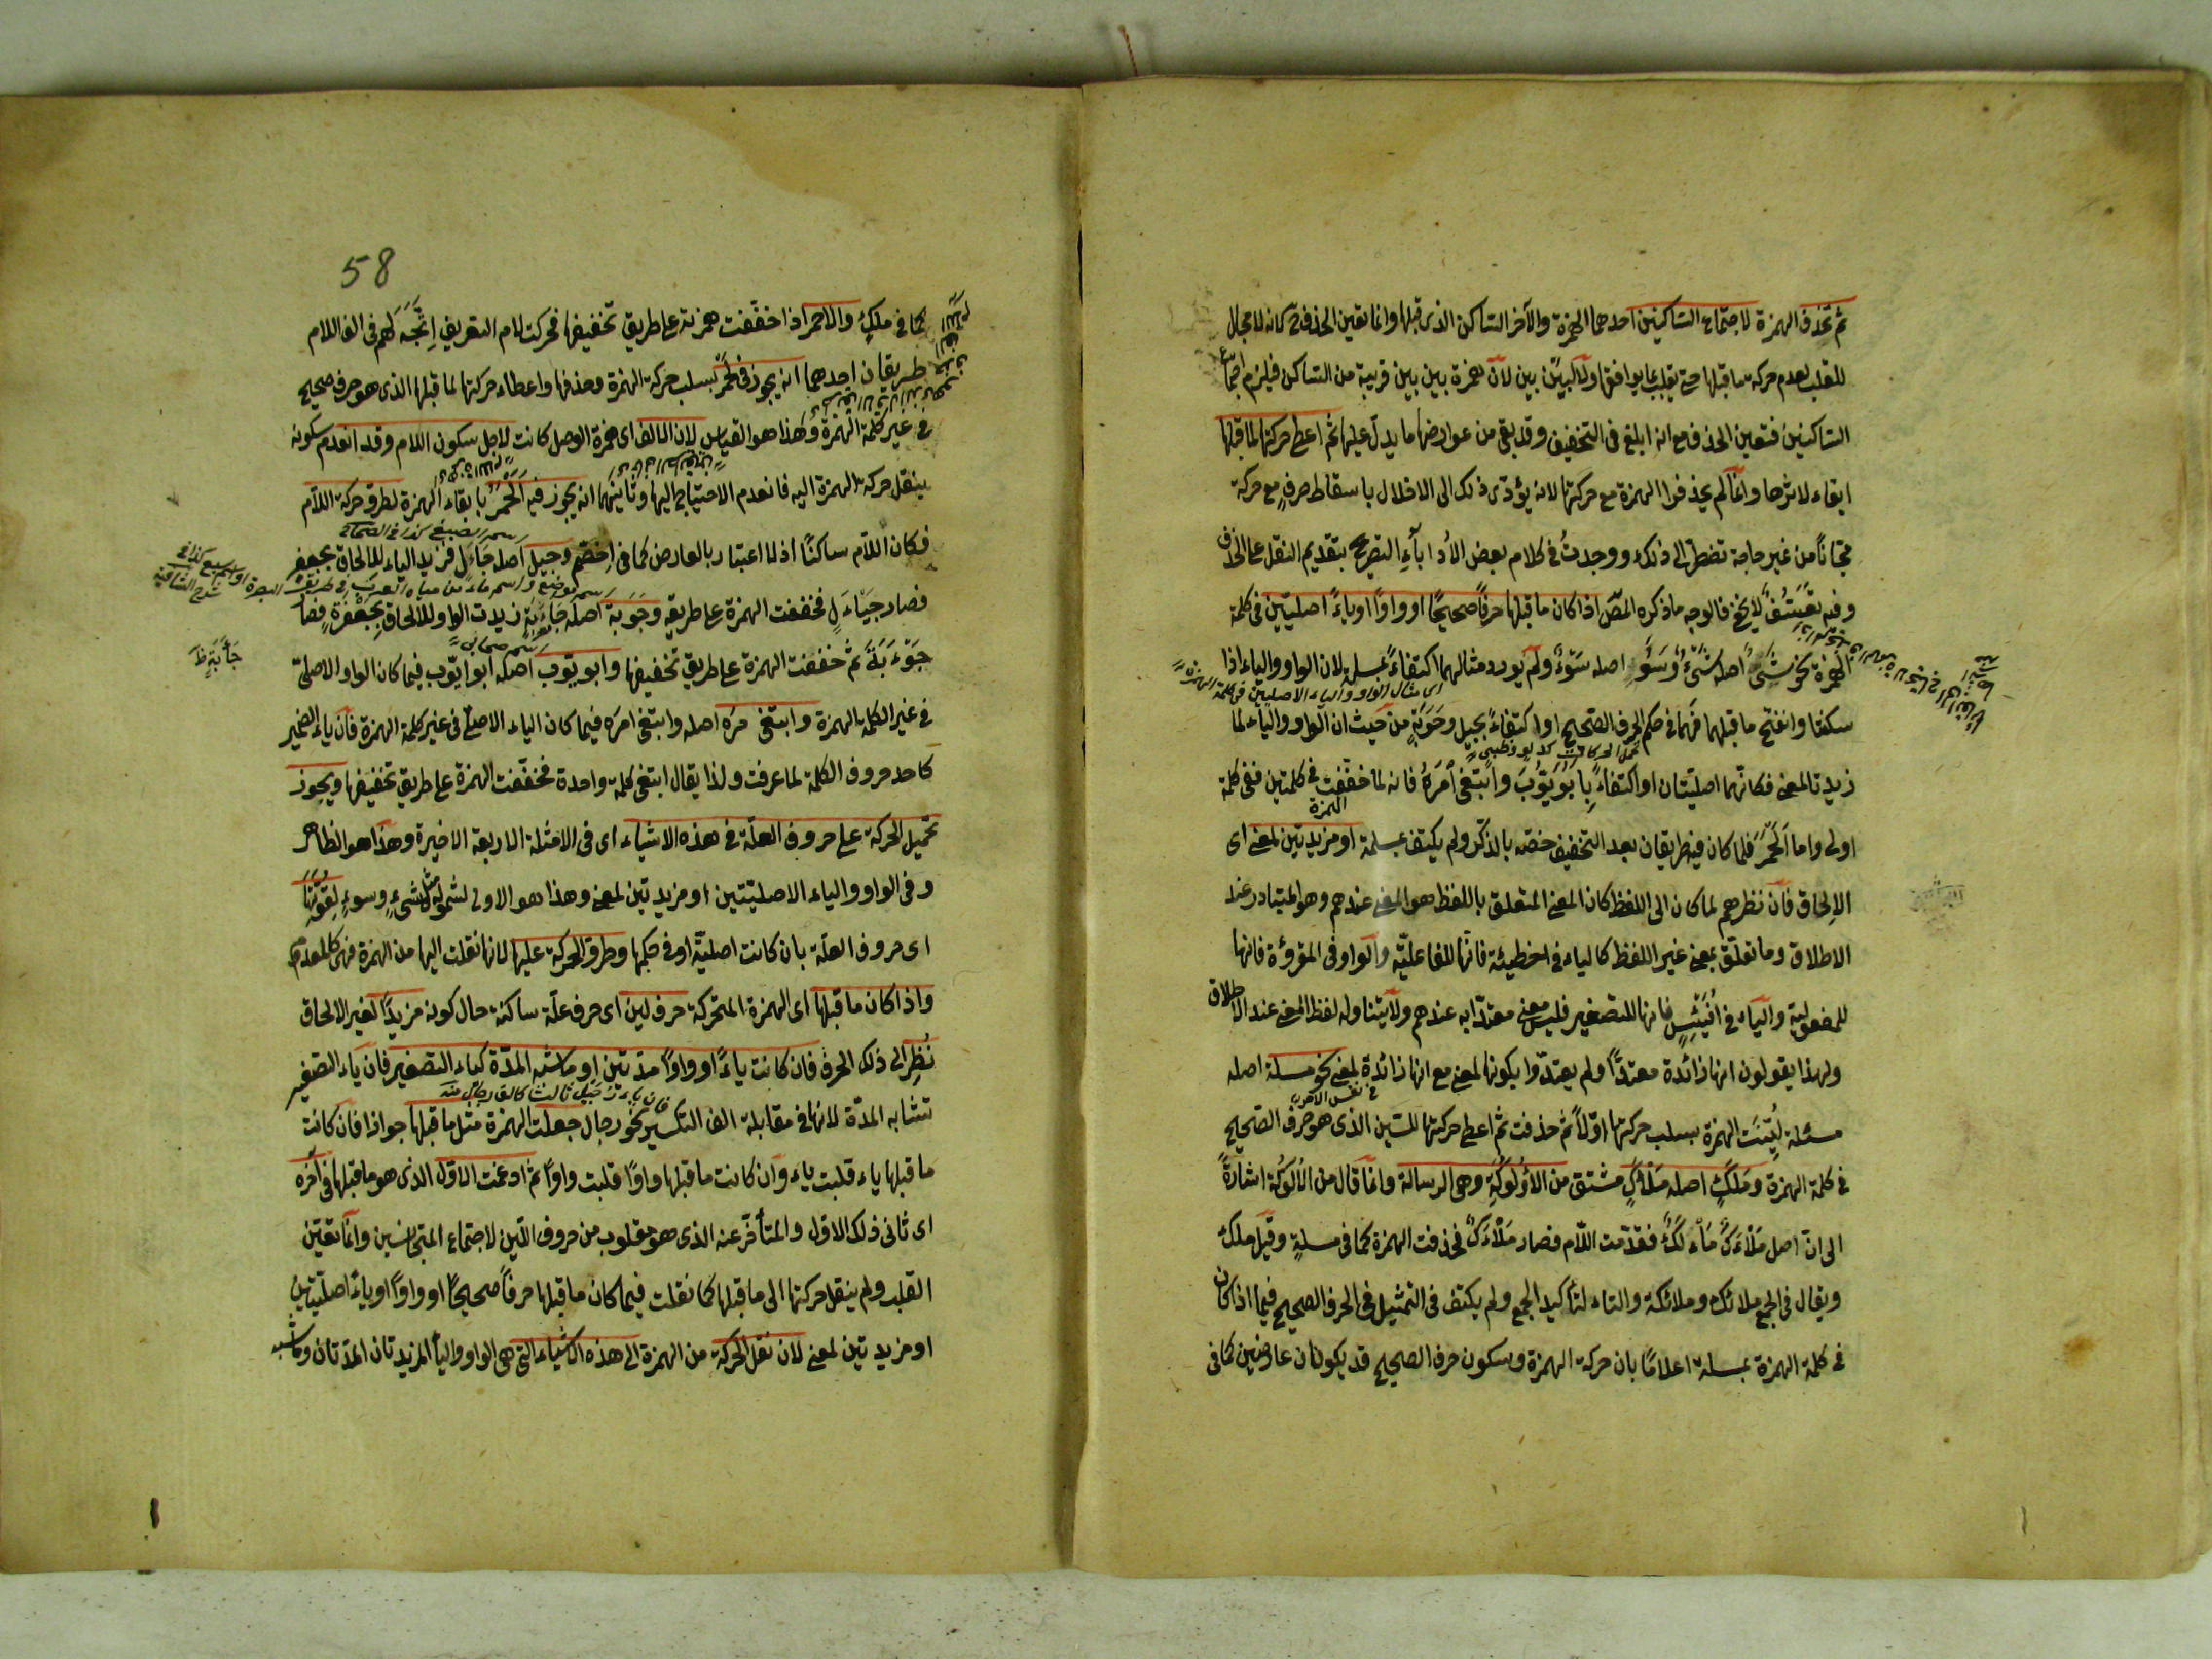 ثم تحذف الهمزة لاجتماع الساكنين احدهما الهمزة والآخر الساكن الذى قبلها وانما تعين الحذف لانه لا مجال
للقلب لعدم حركة ما قبلها حتى يقلب بما يوافقها ولا لبين بين لان همزة بين بين قريبة من الساكن فيلزم اجتماع
الساكنين فتعين الحذف مع انه ابلغ فى التخفيف وقد بقى من عوارضها ما يدل عليها ثم اعطى حركتها لما قبلها
ابقاء لاثرها وانما لم يحذفوا الهمزة مع حركتها لانه يؤدى ذلك الى الاخلال باسقاط حرف مع حركة
مجانا من غير حاجة تضطر الى ذلك ووجدت فى كلام بعض الأدباء التصريح بتقديم النقل على الحذف
وفيه تعسف لا يخفى فالوجه ما ذكره المص اذا كان ما قبلها حرفا صحيحا او واوا او ياء اصليتين فى كلمة
الهمزة نحو شى اصله شئ وسو اصله سوء ولم يورد مثالهما اكتفاء بمسلة لان الواو والياء اذا
اى مثال الواو والياء الاصليين فى كلمة الهمزة
سكنتا وانفتح ما قبلهما فهما فى حكم الحرف الصحيح او اكتفاء بجيل وحوبة من حيث ان الواو والياء لما
زيدتا لمعنى فكانهما اصليتان او اكتفاء بابو يوب وابتغى امره فانه لما خففت فى كلمتين ففى كلمة
الهمزة
اولى واما الحمر فلما كان فيه طريقان بعد التخفيف خصه بالذكر ولم يكتف بمسلة او مزيدتين لمعنى اى
الالحاق فان نظرهم لما كان الى اللفظ كان المعنى المتعلق باللفظ هو المعنى عندهم وهو المتبادر عند
الاطلاق وما تعلق بمعنى غير اللفظ كالياء فى خطيئة فانها للفاعلية والواو فى المقروءة فانها
للمفعولية والياء فى افيئس فانها للتصغير فليس معنى معتدا به عندهم ولا يتناوله لفظ المعنى عند الاطلاق
ولهذا يقولون انها زائدة معتدا ولم يعتدوا بكونها لمعنى مع انها زائدة لمعنى نحو مسلة اصله
فى نفس الامر
مسئلة لينت الهمزة بسلب حركتها اولا ثم حذفت ثم اعطى حركتها للسين الذى هو حرف الصحيح
فى كلمة الهمزة وملك اصله ملأك مشتق من الالوكة وهى الرسالة وانما قال من الالوكة اشارة
الى ان اصل ملاءك مالك فقدمت اللام فصار ملاءك فحذفت الهمزة كما فى مسلة وقيل ملك
ويقال فى الجمع ملائك وملائكة والتاء لتاكيد الجمع ولم يكتف فى التمثيل فى الحرف الصحيح فيما اذا كان
فى كلمة الهمزة بمسلة اعلاما بان حركة الهمزة وسكون حرف الصحيح قد يكونان عارضين كما فى
58
كما فى ملك والاحمر اذا خففت همزته على طريق تخفيفها فحركت لام التعريف اتجه لهم فى الف اللام
طريقان احدهما انه يجوز فى لحمر بسلب حركة الهمزة وحذفها واعطاء حركتها لما قبلها الذى هو حرف صحيح
فى غير كلمة الهمزة وهذا هو القياس لان الالف اى همزة الوصل كانت لاجل سكون اللام وقد انعدم سكونه
بنقل حركة الهمزة اليه فانعدم الاحتياج اليها وثانيهما انه يجوز فيه الحمر بابقاء الهمزة لطرو حركة اللام
اسم الضبع كذا فى الصحاح
فكان اللام ساكنا اذ لا اعتبار بالعارض كما فى اخصم وجيل اصله جاءل فزيد الياء للالحاق بجعفر
اسم موضع واسم ماء من مياه العرب فى طريق البصرة
فصار جيأل فخففت الهمزة على طريقه وحوبة اصله جاءبة زيدت الواو للالحاق بجعفرة فصار
جأبة ظ
اسم صحابى
جوءبة ثم خففت الهمزة على طريق تخفيفها وابو يوب اصله ابو ايوب فيما كان الواو الاصلى
فى غير الكلمة الهمزة وابتغى مره اصله وابتغى امره فيما كان الياء الاصلى فى غير كلمة الهمزة فان ياء الضمير
كاحد حروف الكلمة لما عرفت ولذا يقال ابتغى كلمة واحدة فخففت الهمزة على طريق تخفيفها ويجوز
تحميل الحركة على حروف العلة فى هذه الاشياء اى فى الامثلة الاربعة الاخيرة وهذا هو الظاهر
وفى الواو والياء الاصليتين او مزيدتين لمعنى وهذا هو الاولى لشموله مثل شىء وسوء لقوتها
اى حروف العلة بان كانت اصلية او فى حكمها وطرو الحركة عليها لانها نقلت اليها من الهمزة فهى كالمعدم
واذا كان ما قبلها اى الهمزة المتحركة حرف لين اى حرف علة ساكنة حال كونه مزيدا لغير الالحاق
نظر الى ذلك الحرف فان كانت ياء او واوا مدتين او ما شبه المدة كياء التصغير فان ياء التصغير
فان ياء رجيل ثالث كالف رجال منه
تشابه المدة لانها فى مقابلة الف التكسير نحو رجال جعلت الهمزة مثل ما قبلها جوازا فان كانت
ما قبلها ياء قلبت ياء وان كانت ما قبلها واوا قلبت واوا ثم ادغمت الاول الذى هو ما قبلها فى آخره
اى ثانى ذلك الاول والمتأخر عنه الذى هو مقلوب من حروف اللين لاجتماع المتجانسين وانما تعين
القلب ولم ينقل حركتها الى ما قبلها كما نقلت فيما كان ما قبلها حرفا صحيحا او واوا او ياء اصليتين
او مزيدتين لمعنى لان نقل الحركة من الهمزة الى هذه الاشياء التى هى الواو والياء المزيدتان المدتان وما شبه